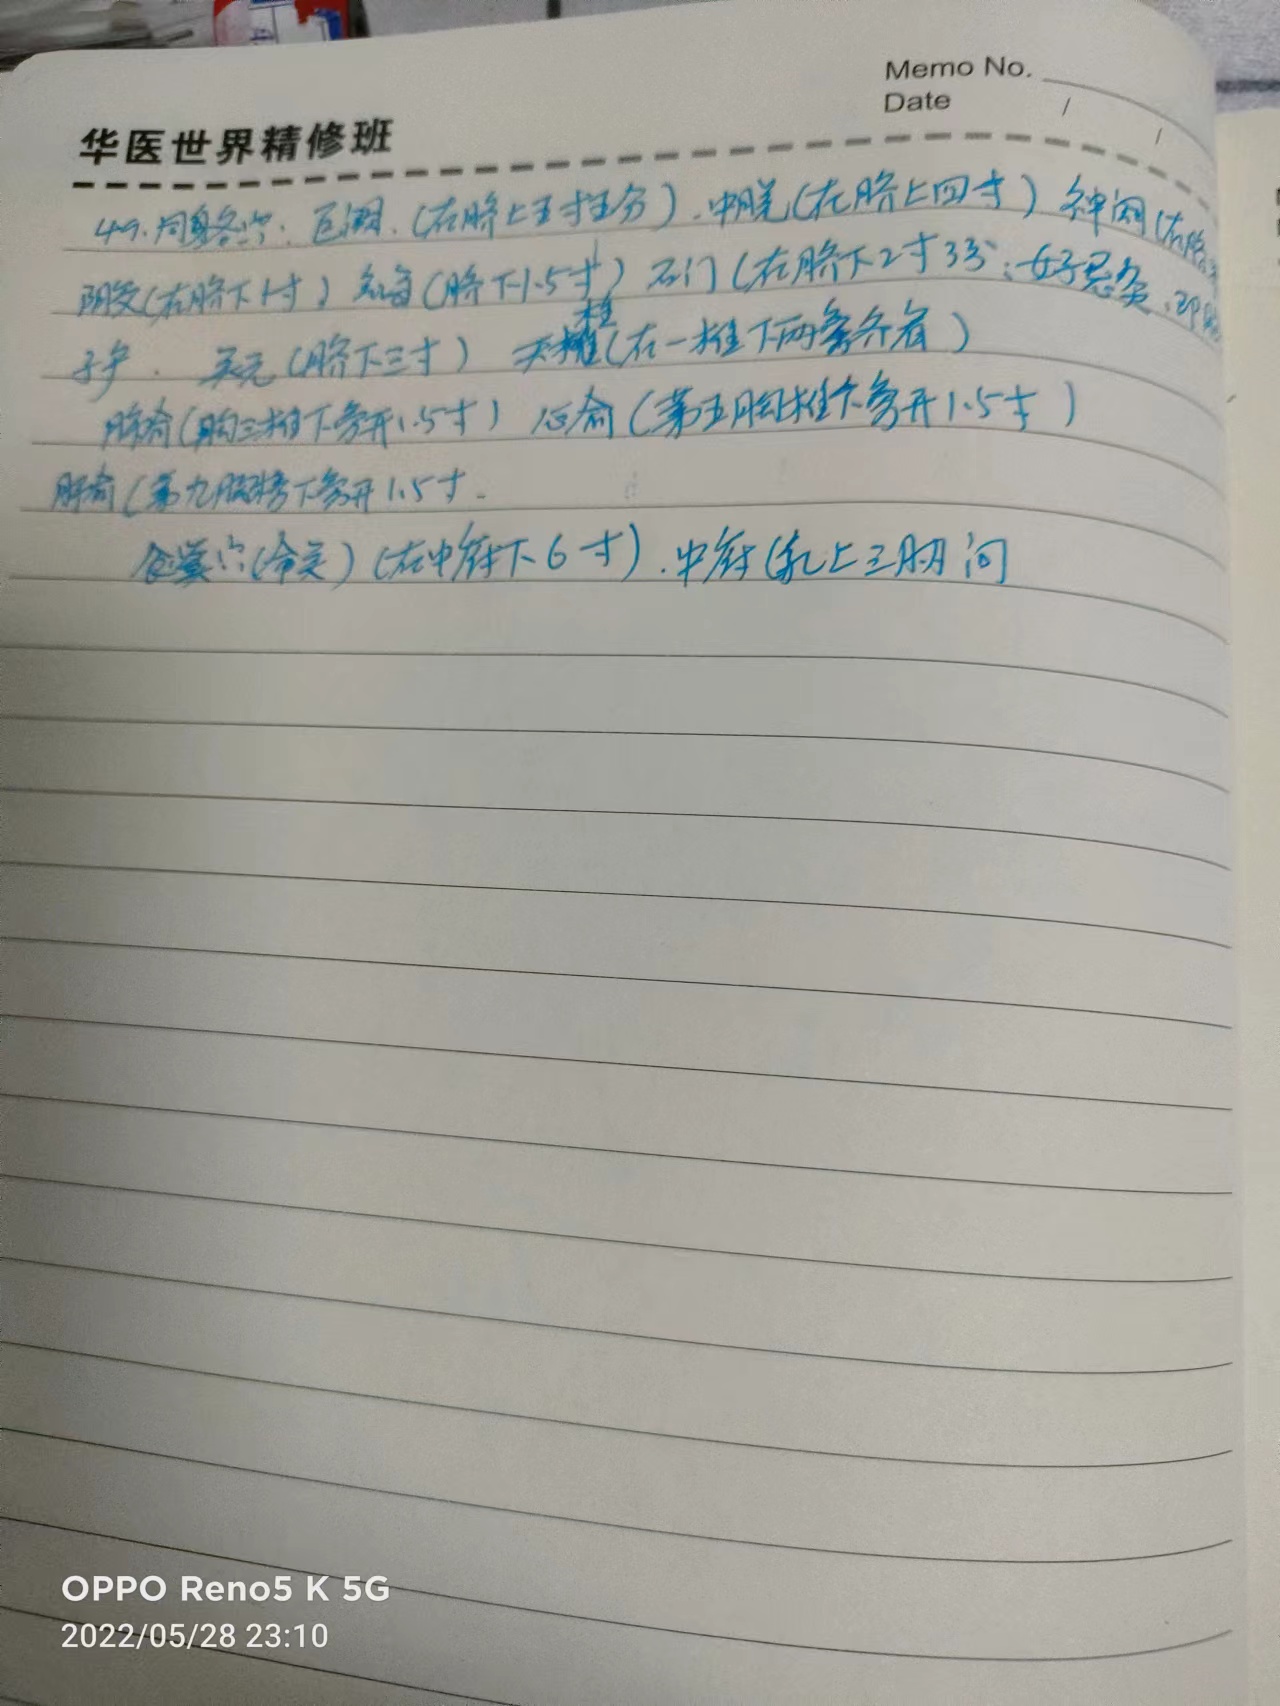 Memo No.
Date / /
华医世界精修班
49.周身各穴:巨阙.(在脐上五寸五分).中脘(在脐上四寸)神阙(在脐
阴交(在脐下1寸)气海(脐下1.5寸)石门(在脐下2寸3分;女子忌灸.即
子户.关元(脐下三寸)天柱(在一椎下两旁齐肩)
肺俞(胸三椎下旁开1.5寸)心俞(第五胸椎下旁开1.5寸)
肝俞(第九胸椎下旁开1.5寸.
食窦穴(命关)(在中府下6寸).中府(乳上三肋间
OPPO Reno5 K 5G
2022/05/28 23:10